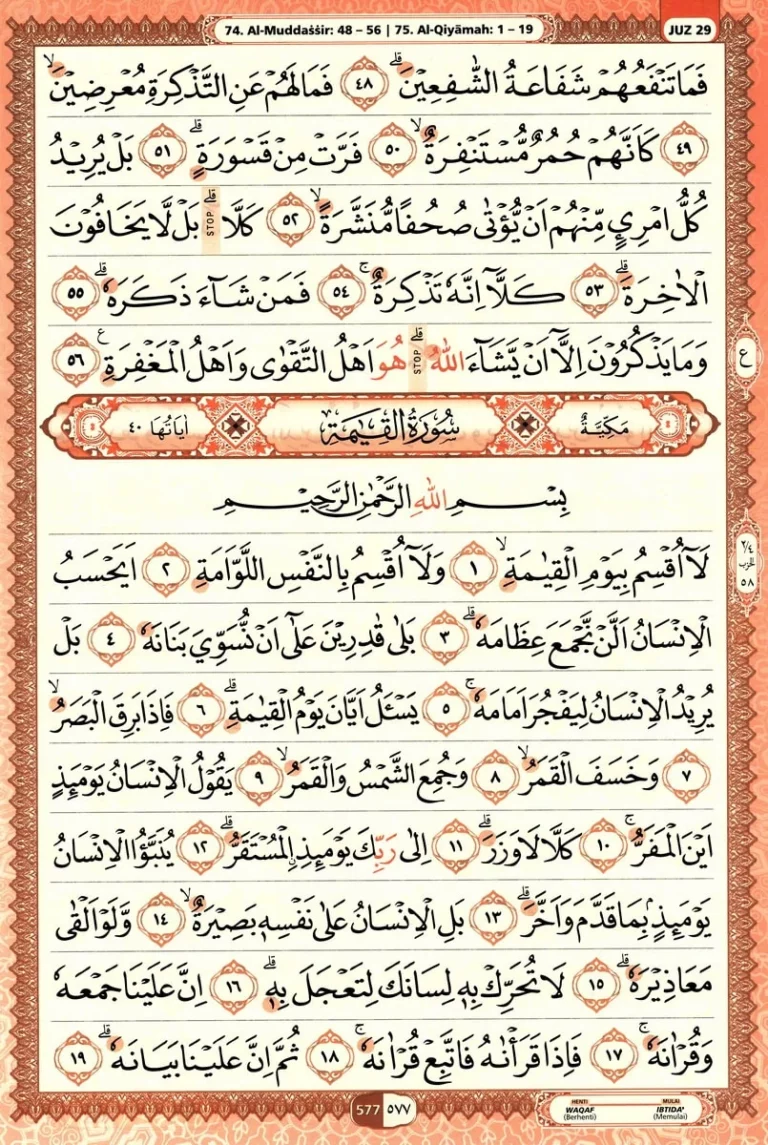 74. Al-Muddaṡṡir: 48 – 56 | 75. Al-Qiyāmah: 1 – 19
JUZ 29
فَمَا تَنْفَعُهُمْ شَفَاعَةُ الشّٰفِعِيْنَۗ ٤٨ فَمَا لَهُمْ عَنِ التَّذْكِرَةِ مُعْرِضِيْنَۙ
٤٩ كَاَنَّهُمْ حُمُرٌ مُّسْتَنْفِرَةٌۙ ٥٠ فَرَّتْ مِنْ قَسْوَرَةٍۗ ٥١ بَلْ يُرِيْدُ
كُلُّ امْرِئٍ مِّنْهُمْ اَنْ يُّؤْتٰى صُحُفًا مُّنَشَّرَةًۙ ٥٢ كَلَّاۗ STOP بَلْ لَّا يَخَافُوْنَ
الْاٰخِرَةَۗ ٥٣ كَلَّآ اِنَّهٗ تَذْكِرَةٌۚ ٥٤ فَمَنْ شَاۤءَ ذَكَرَهٗۗ ٥٥
وَمَا يَذْكُرُوْنَ اِلَّآ اَنْ يَّشَاۤءَ اللّٰهُۗ STOP هُوَ اَهْلُ التَّقْوٰى وَاَهْلُ الْمَغْفِرَةِࣖ ٥٦
ع
مَكِّيَّةٌ سُوْرَةُ الْقِيٰمَةِ اٰيَاتُهَا ٤٠
بِسْمِ اللّٰهِ الرَّحْمٰنِ الرَّحِيْمِ
لَآ اُقْسِمُ بِيَوْمِ الْقِيٰمَةِۙ ١ وَلَآ اُقْسِمُ بِالنَّفْسِ اللَّوَّامَةِ ٢ اَيَحْسَبُ
٢/٤
الحزب
٥٨
الْاِنْسَانُ اَلَّنْ نَّجْمَعَ عِظَامَهٗۗ ٣ بَلٰى قٰدِرِيْنَ عَلٰٓى اَنْ نُّسَوِّيَ بَنَانَهٗ ٤ بَلْ
يُرِيْدُ الْاِنْسَانُ لِيَفْجُرَ اَمَامَهٗۚ ٥ يَسْـَٔلُ اَيَّانَ يَوْمُ الْقِيٰمَةِۗ ٦ فَاِذَا بَرِقَ الْبَصَرُۙ
٧ وَخَسَفَ الْقَمَرُۙ ٨ وَجُمِعَ الشَّمْسُ وَالْقَمَرُۙ ٩ يَقُوْلُ الْاِنْسَانُ يَوْمَىِٕذٍ
اَيْنَ الْمَفَرُّۚ ١٠ كَلَّا لَا وَزَرَۗ ١١ اِلٰى رَبِّكَ يَوْمَىِٕذِ ِۨالْمُسْتَقَرُّۗ ١٢ يُنَبَّؤُا الْاِنْسَانُ
يَوْمَىِٕذٍۢ بِمَا قَدَّمَ وَاَخَّرَۗ ١٣ بَلِ الْاِنْسَانُ عَلٰى نَفْسِهٖ بَصِيْرَةٌۙ ١٤ وَّلَوْ اَلْقٰى
مَعَاذِيْرَهٗۗ ١٥ لَا تُحَرِّكْ بِهٖ لِسَانَكَ لِتَعْجَلَ بِهٖۗ ١٦ اِنَّ عَلَيْنَا جَمْعَهٗ
وَقُرْاٰنَهٗۚ ١٧ فَاِذَا قَرَأْنٰهُ فَاتَّبِعْ قُرْاٰنَهٗۚ ١٨ ثُمَّ اِنَّ عَلَيْنَا بَيَانَهٗۗ ١٩
577 ٥٧٧
HENTI
WAQAF
(Berhenti)
MULAI
IBTIDA'
(Memulai)